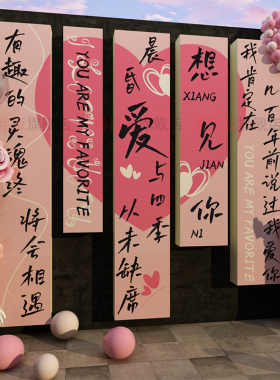 有趣的灵魂终
将会相遇
YOU ARE MY FAVORITE
晨昏
爱与四季
从未缺席
想
XIANG
见
JIAN
你
NI
我肯定在
几百年前说过爱你
YOU ARE MY FAVORITE